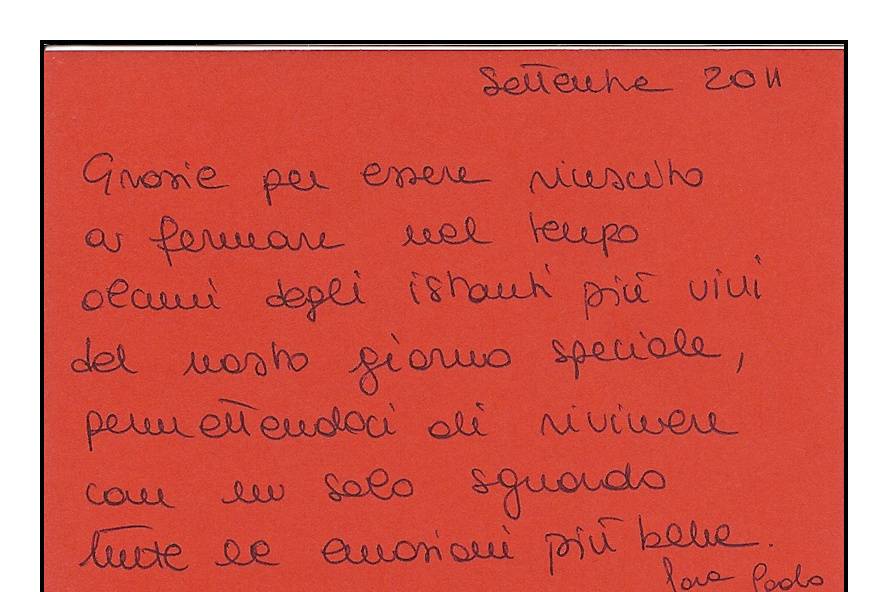 Settembre 2011
Grazie per essere riuscito
a fermare nel tempo
alcuni degli istanti più vivi
del nostro giorno speciale,
permettendoci di rivivere
con un solo sguardo
tutte le emozioni più belle.
Sara Paolo